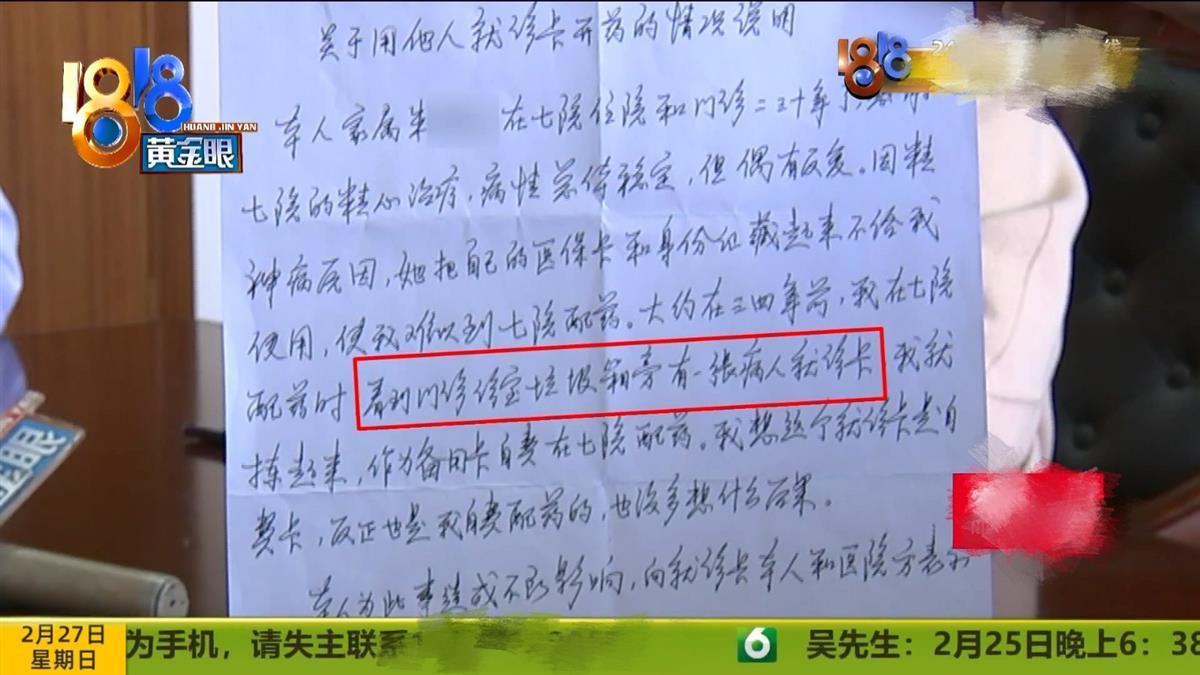 关于用他人就诊卡开药的情况说明
1818
HUANG JIN YAN
黄金眼
1818
线
本人家属朱 在七院住院和门诊二三十年了
七院的精心治疗，病情总体稳定，但偶有反复。因精
神病原因，她把自己的医保卡和身份证藏起来不给我
使用，使我难以到七院配药。大约在三四年前，我在七院
配药时看到门诊诊室垃圾箱旁有一张病人就诊卡 我就
拣起来，作为备用卡自费在七院配药。我想这个就诊卡是自
费卡，反正也是我自费配药的，也没多想什么后果。
本人为此事造成不良影响，向就诊卡本人和医院方表示
2月27日
星期日
为手机，请失主联系
6
吴先生：2月25日晚上6：38